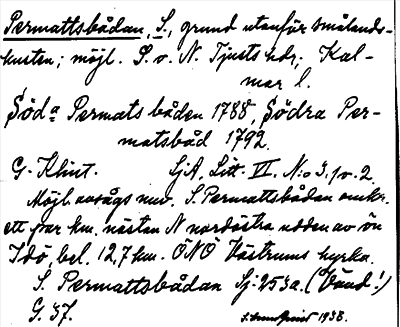 Permattsbådan, S., grund utanför smålands-
kusten; möjl. S. o. N. Tjusts hdr; Kal-
mar l.
Söda Permats båden 1788, Södra Per-
matsbåd 1792.
G. Klint. SjA, Litt. VI. N:o 3. 1 o. 2.
Möjl. avsågs nuv. S. Permattsbådan omkr.
ett par km. nästan N nordöstra udden av ön
Idö, bel. 12,7 km. ÖNÖ Västrums kyrka.
S. Permattsbådan Sj. 253a. (Vänd!)
G. 37. 1938.